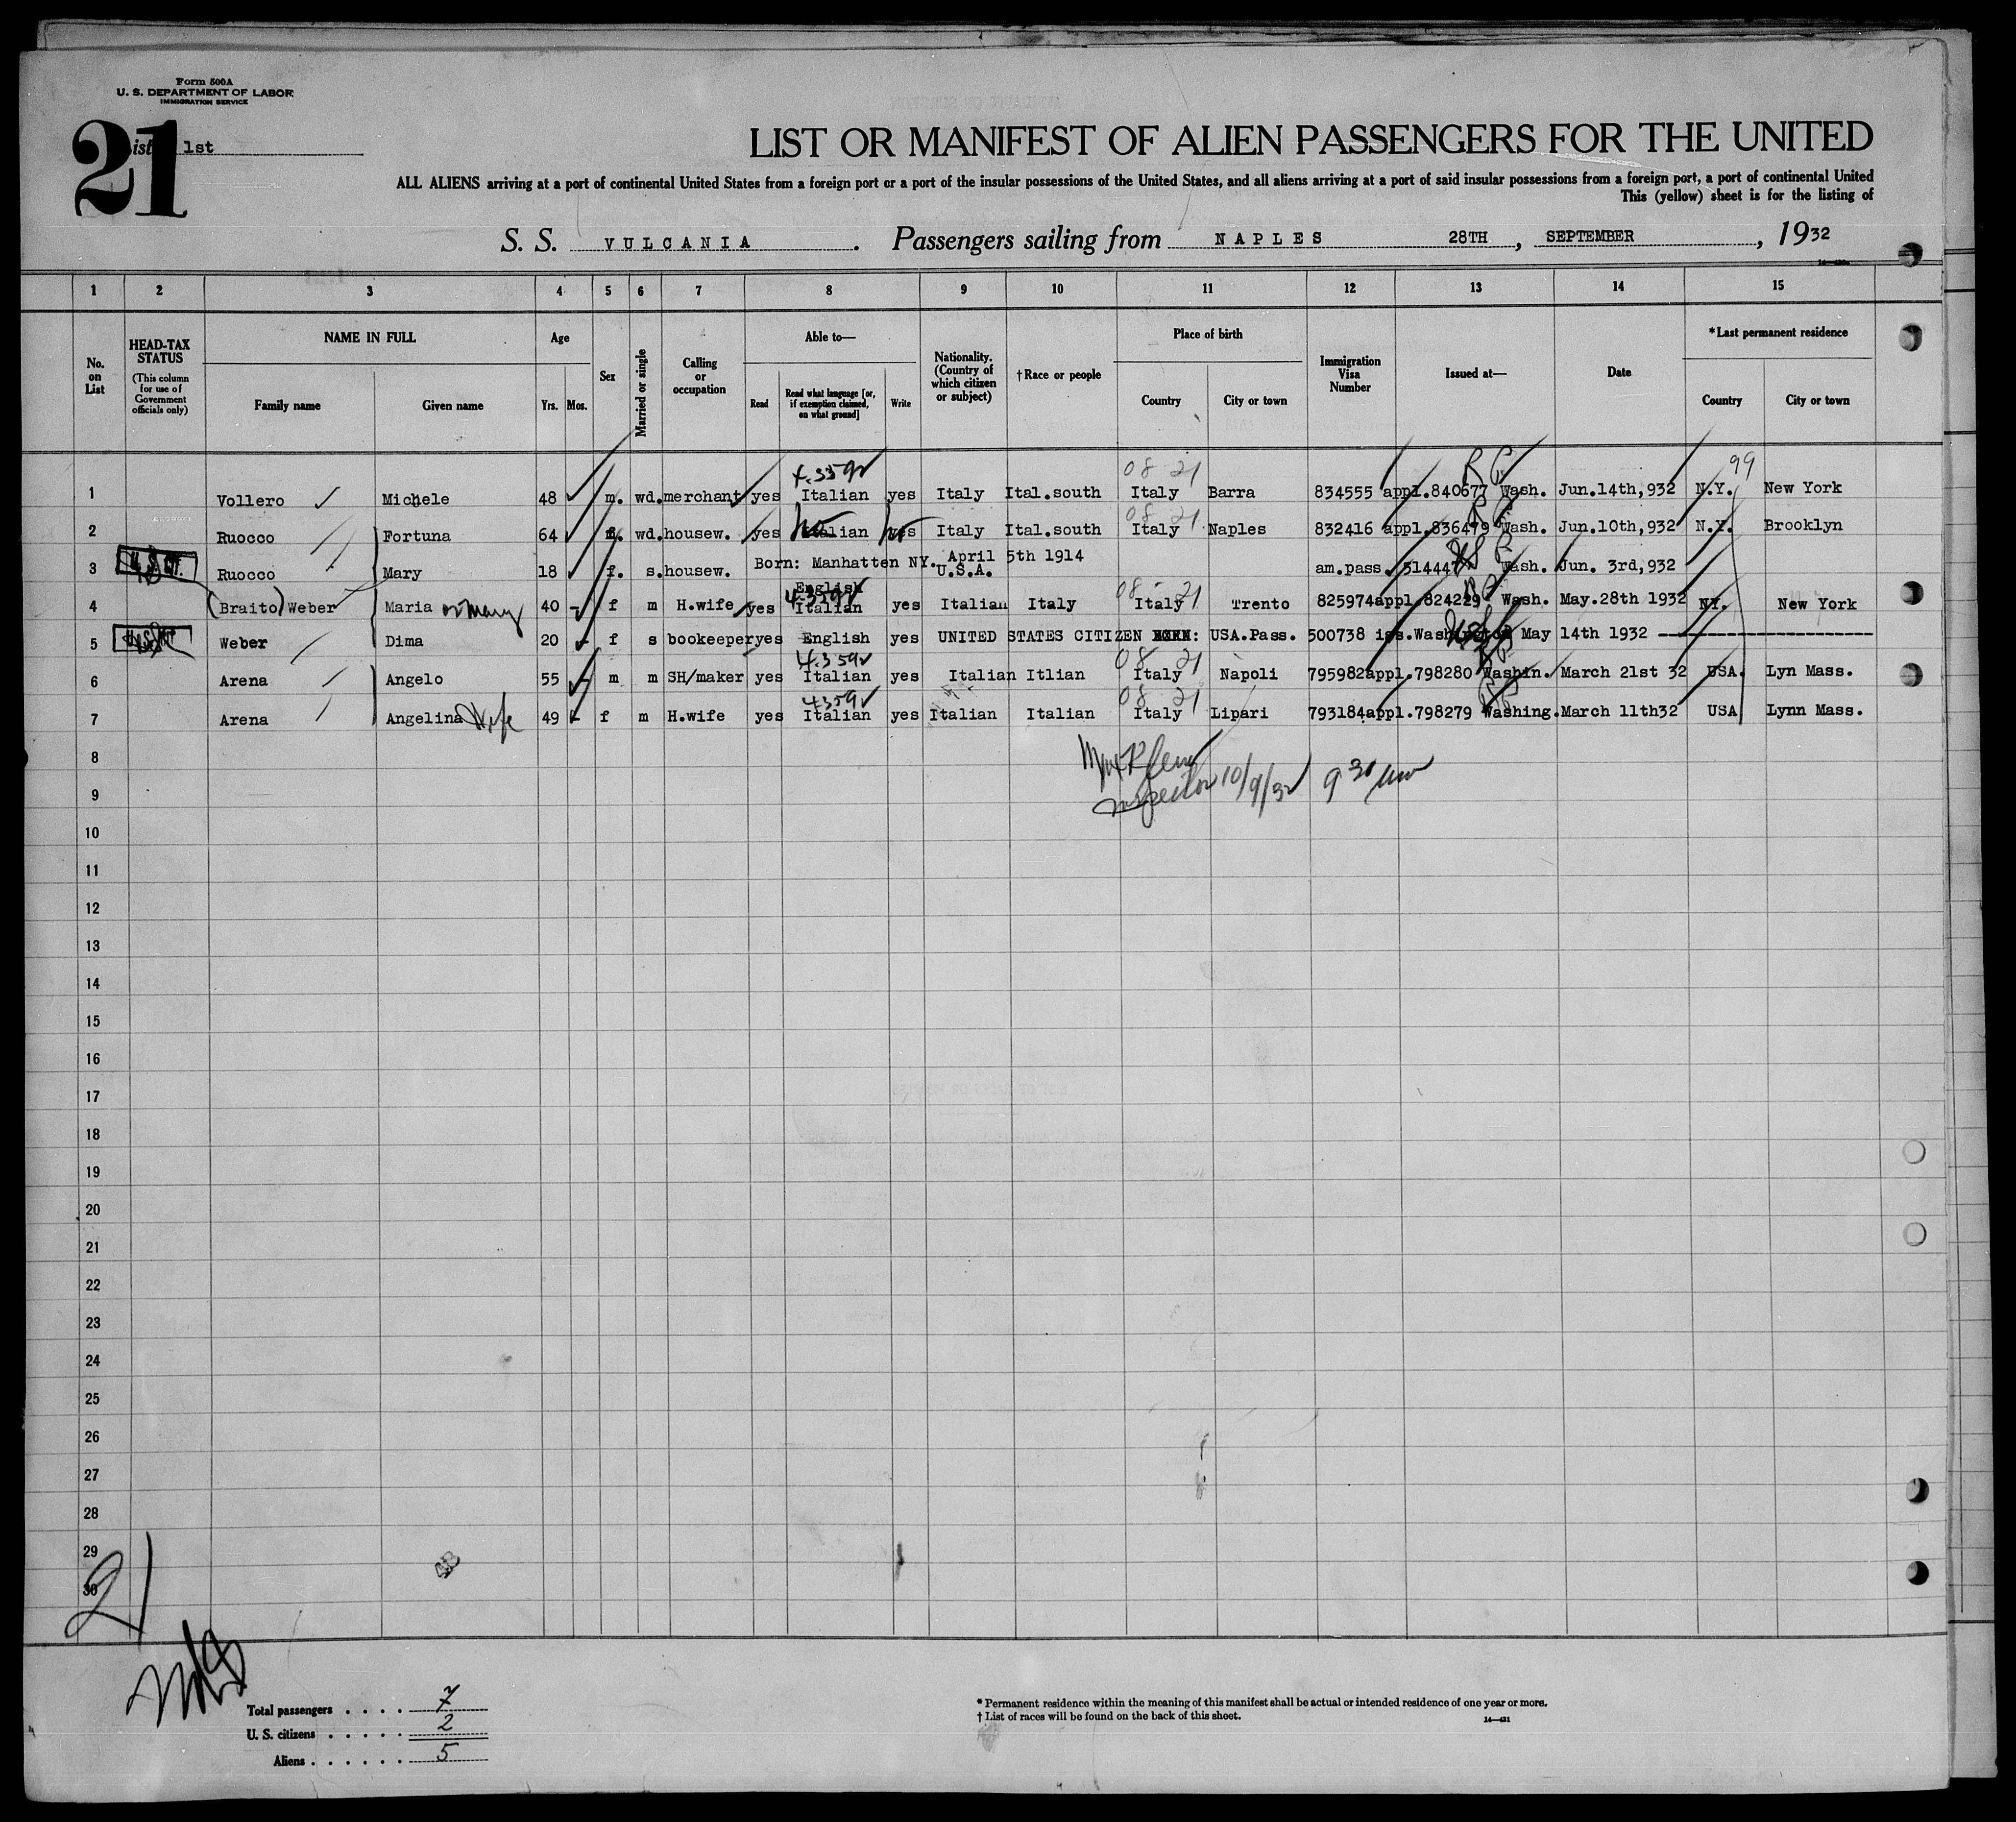 Form 500A
U. S. DEPARTMENT OF LABOR
IMMIGRATION SERVICE
21
List 1st
LIST OR MANIFEST OF ALIEN PASSENGERS FOR THE UNITED
ALL ALIENS arriving at a port of continental United States from a foreign port or a port of the insular possessions of the United States, and all aliens arriving at a port of said insular possessions from a foreign port, a port of continental United
This (yellow) sheet is for the listing of
S. S. VULCANIA. Passengers sailing from NAPLES 28TH, SEPTEMBER, 1932
1 2 3 4 5 6 7 8 9 10 11 12 13 14 15
No. on List
HEAD-TAX STATUS
(This column for use of Government officials only)
NAME IN FULL
Family name Given name
Age
Yrs. Mos.
Sex
Married or single
Calling or occupation
Able to—
Read
Read what language [or, if exemption claimed, on what ground]
Write
Nationality. (Country of which citizen or subject)
† Race or people
Place of birth
Country City or town
Immigration Visa Number
Issued at—
Date
*Last permanent residence
Country City or town
4.359 08 21 R P 99
1 Vollero Michele 48 m. wd. merchant yes Italian yes Italy Ital.south Italy Barra 834555 appl.840677 Wash. Jun.14th,932 N.Y. New York
08 21
2 Ruocco Fortuna 64 f. wd. housew. yes Italian no yes no Italy Ital.south Italy Naples 832416 appl.836479 Wash. Jun.10th,932 N.Y. Brooklyn
3 Ruocco Mary 18 f. s. housew. Born: Manhatten NY. April 5th 1914 U.S.A. am.pass. 514447 Wash. Jun. 3rd,932
English
4.359 08 21
4 (Braito) Weber Maria or Mary 40 f m H.wife yes Italian yes Italian Italy Italy Trento 825974 appl.824229 Wash. May.28th 1932 NY. New York
5 Weber Dima 20 f s bookeeper yes English yes UNITED STATES CITIZEN BORN: USA.Pass. 500738 iss.Washington May 14th 1932
4.359 08 21
6 Arena Angelo 55 m m SH/maker yes Italian yes Italian Itlian Italy Napoli 795982 appl.798280 Washin. March 21st 32 USA. Lyn Mass.
4359 08 21
7 Arena Angelina Wife 49 f m H.wife yes Italian yes Italian Italian Italy Lipari 793184 appl.798279 Washing. March 11th32 USA Lynn Mass.
8
Inspector 10/9/32 9 30 am
9
10
11
12
13
14
15
16
17
18
19
20
21
22
23
24
25
26
27
28
29
30
21
Total passengers . . . . . 7
U. S. citizens . . . . . 2
Aliens . . . . . . 5
* Permanent residence within the meaning of this manifest shall be actual or intended residence of one year or more.
† List of races will be found on the back of this sheet.
14—421